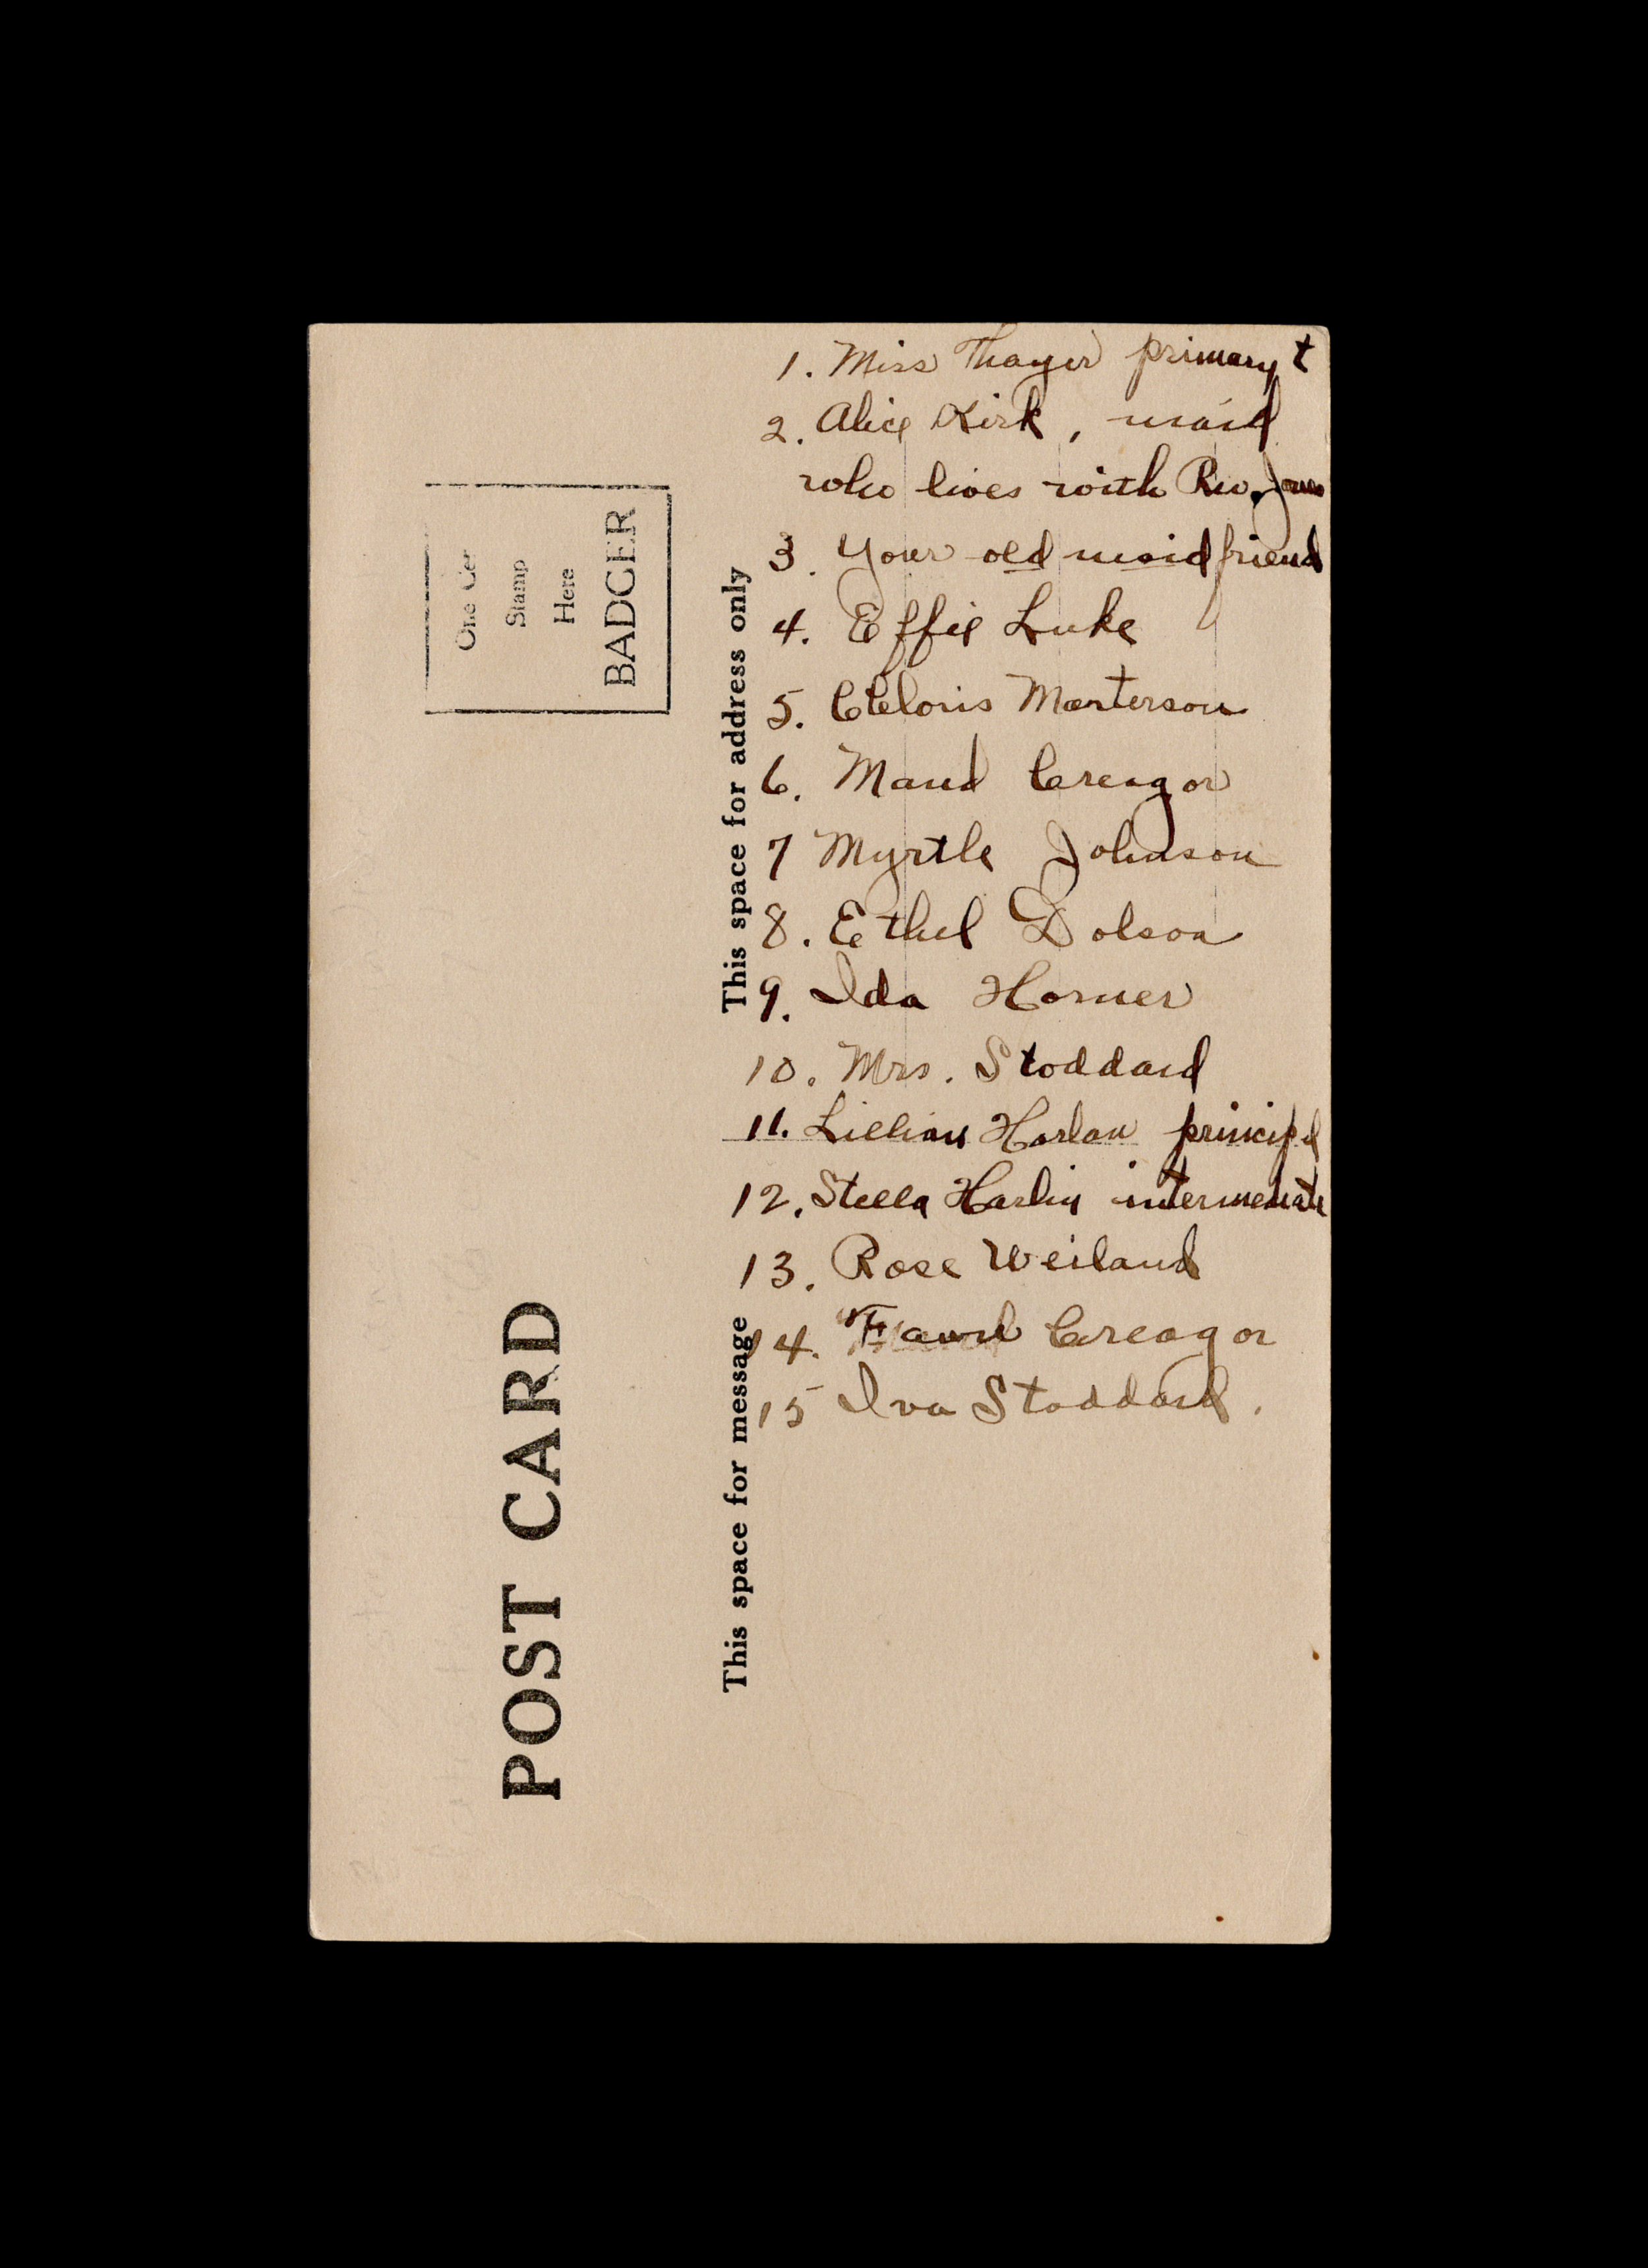 1. Miss Thayer primary t
2. Alice Kirk, maid
who lives with Rev. Jones
3. Your old maid friend
4. Effie Luke
5. Cleloris Marterson
6. Maud Creagor
7 Myrtle Johnson
8. Ethel Dolson
9. Ida Horner
10. Mrs. Stoddard
11. Lillian Harlan principl
12. Stella Harlin intermediate
13. Rose Weiland
14. Creagor
15 Iva Stoddard.
This space for address only
This space for message
POST CARD
One Cen
Stamp
Here
BADGER